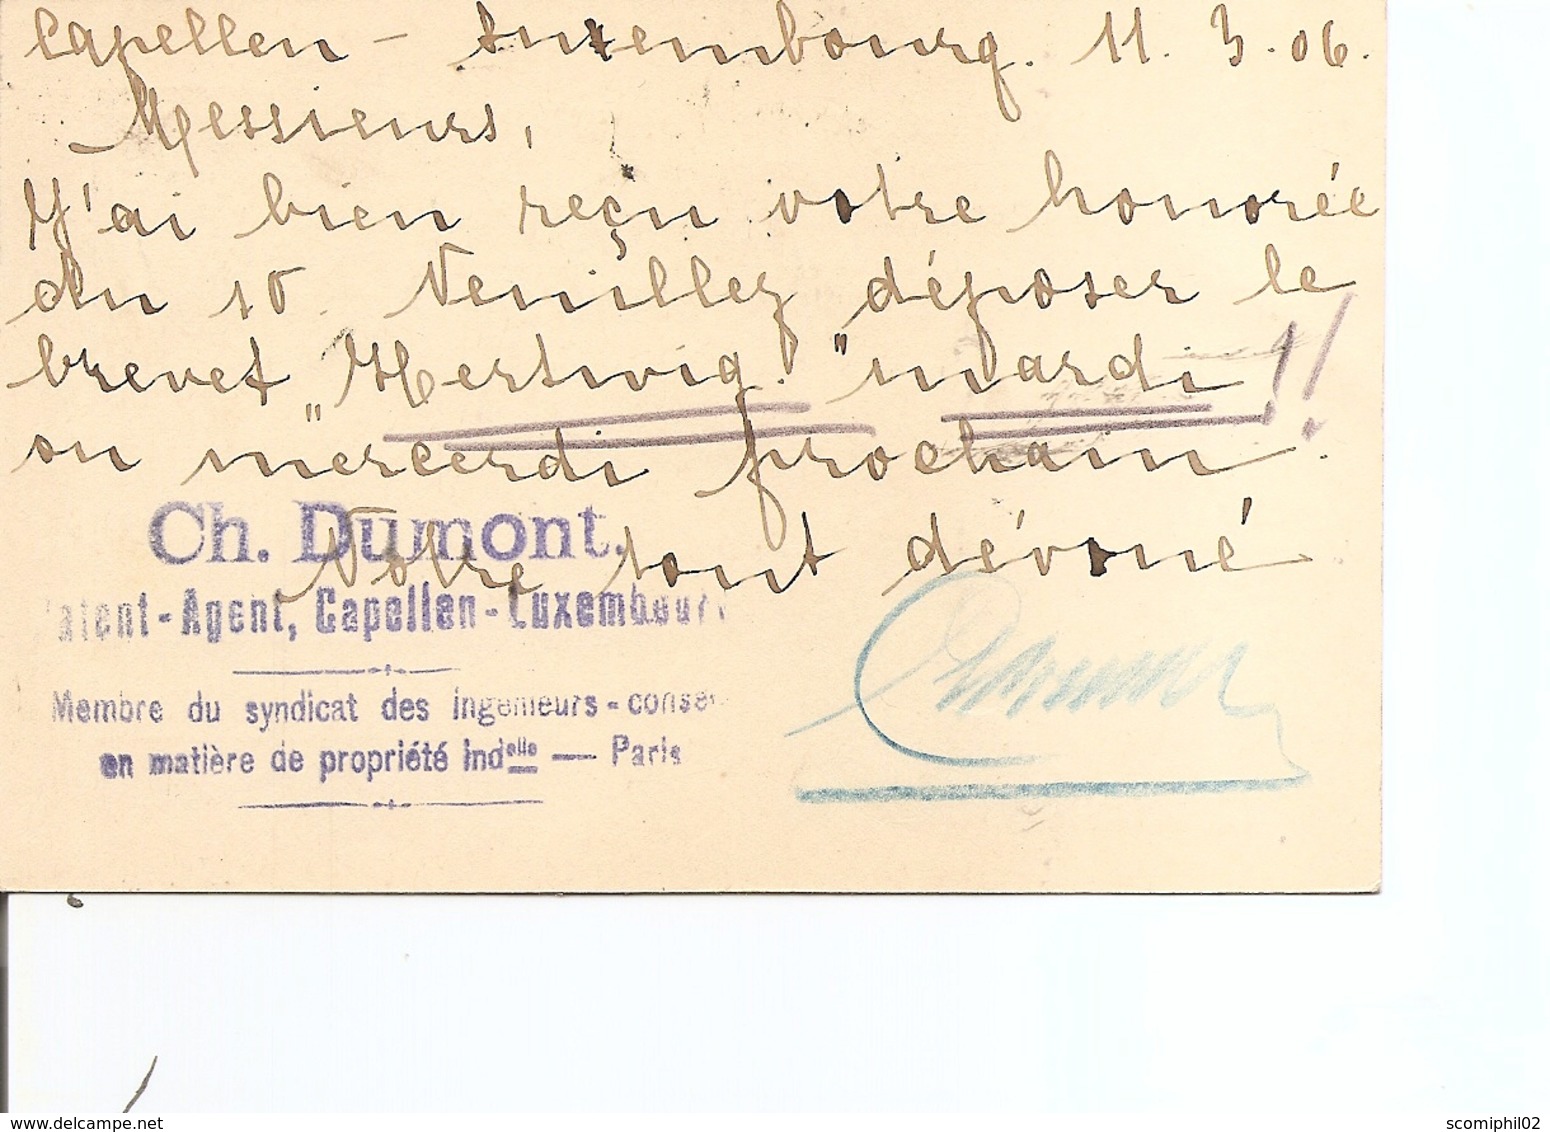 Capellen - Luxembourg. 11. 3. 06.
Messieurs,
J'ai bien reçu votre honorée
du 10. Veuillez déposer le
brevet „Hertwig" mardi !!
ou mercerdi prochain.
Votre tout dévoué
Ch. Dumont.
Patent-Agent, Capellen-Luxembourg
Membre du syndicat des ingenieurs-conseils
en matière de propriété Indelle — Paris
scomiphil02